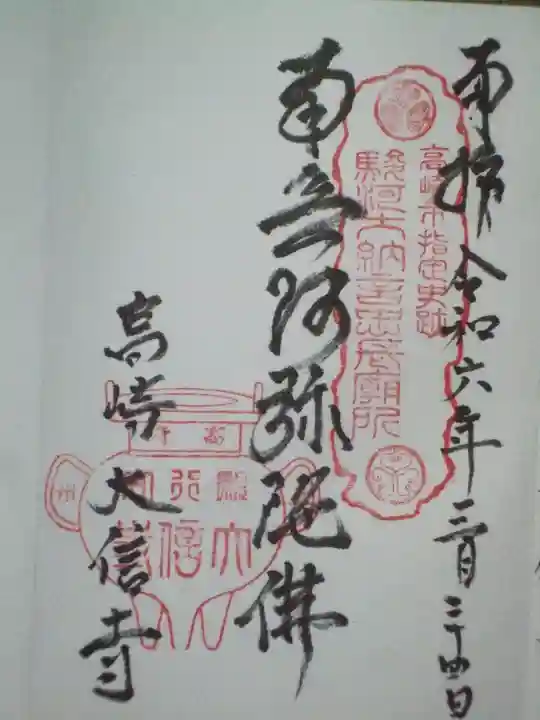 奉拝 令和六年三月二十四日
高崎市指定史跡
駿河大納言忠長廟所
南無阿弥陀佛
高崎 大信寺